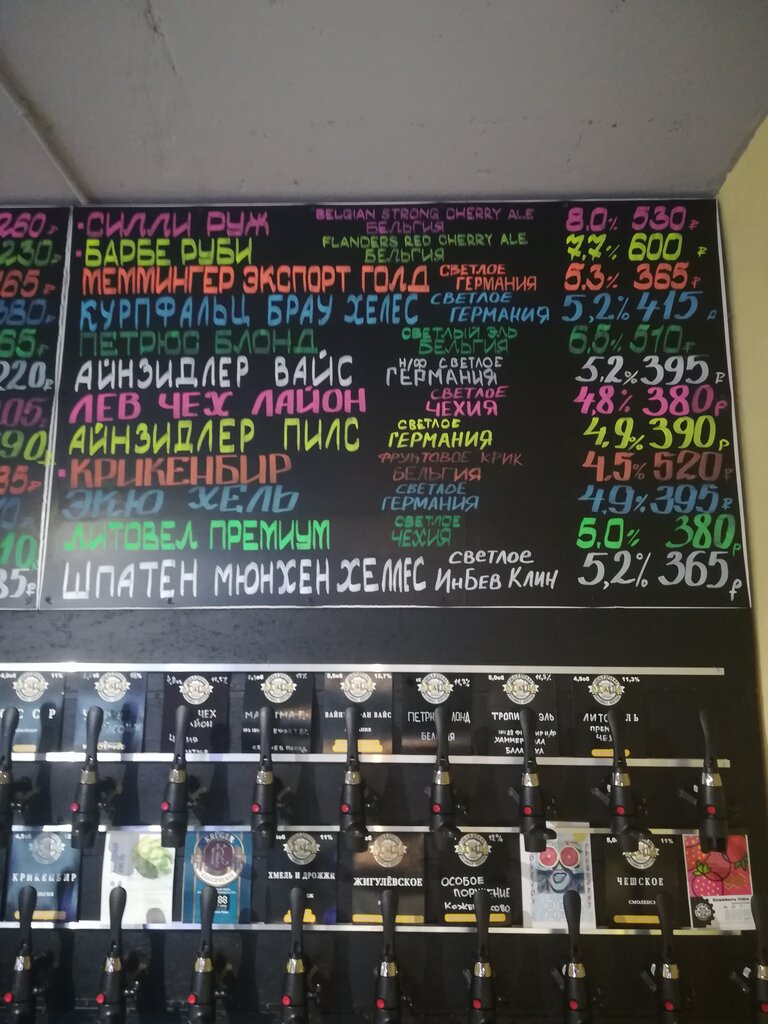 260₽
·СИЛЛИ РУЖ BELGIAN STRONG CHERRY ALE БЕЛЬГИЯ 8.0% 530₽
230₽
·БАРБЕ РУБИ FLANDERS RED CHERRY ALE БЕЛЬГИЯ 7,7% 600₽
МЕММИНГЕР ЭКСПОРТ ГОЛД СВЕТЛОЕ ГЕРМАНИЯ 5.3% 365₽
КУРПФАЛЬЦ БРАУ ХЕЛЕС СВЕТЛОЕ ГЕРМАНИЯ 5,2% 415
ПЕТРЮС БЛОНД СВЕТЛЫЙ ЭЛЬ БЕЛЬГИЯ 6,5% 510₽
220₽
АЙНЗИДЛЕР ВАЙС Н/Ф СВЕТЛОЕ ГЕРМАНИЯ 5,2% 395₽
ЛЕВ ЧЕХ ЛАЙОН СВЕТЛОЕ ЧЕХИЯ 4,8% 380₽
АЙНЗИДЛЕР ПИЛС СВЕТЛОЕ ГЕРМАНИЯ 4,9% 390₽
·КРИКЕНБИР ФРУКТОВОЕ КРИК БЕЛЬГИЯ 4,5% 520₽
ЭКЮ ХЕЛЬ СВЕТЛОЕ ГЕРМАНИЯ 4,9% 395₽
ЛИТОВЕЛ ПРЕМИУМ СВЕТЛОЕ ЧЕХИЯ 5,0% 380₽
ШПАТЕН МЮНХЕН ХЕЛЛЕС СВЕТЛОЕ ИнБев Клин 5,2% 365₽
11% 12,7% 11,3%
ЧЕХ
КРИКЕНБИР
KRÜGER
11%
ХМЕЛЬ И ДРОЖЖИ
ЖИГУЛЁВСКОЕ
12%
ОСОБОЕ
11%
ЧЕШСКОЕ
СМОЛЕНСК
Strawberry Cidre